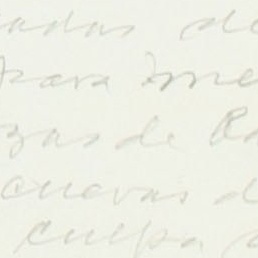 adas de
Para
zas de Ra
cuevas d
culpa